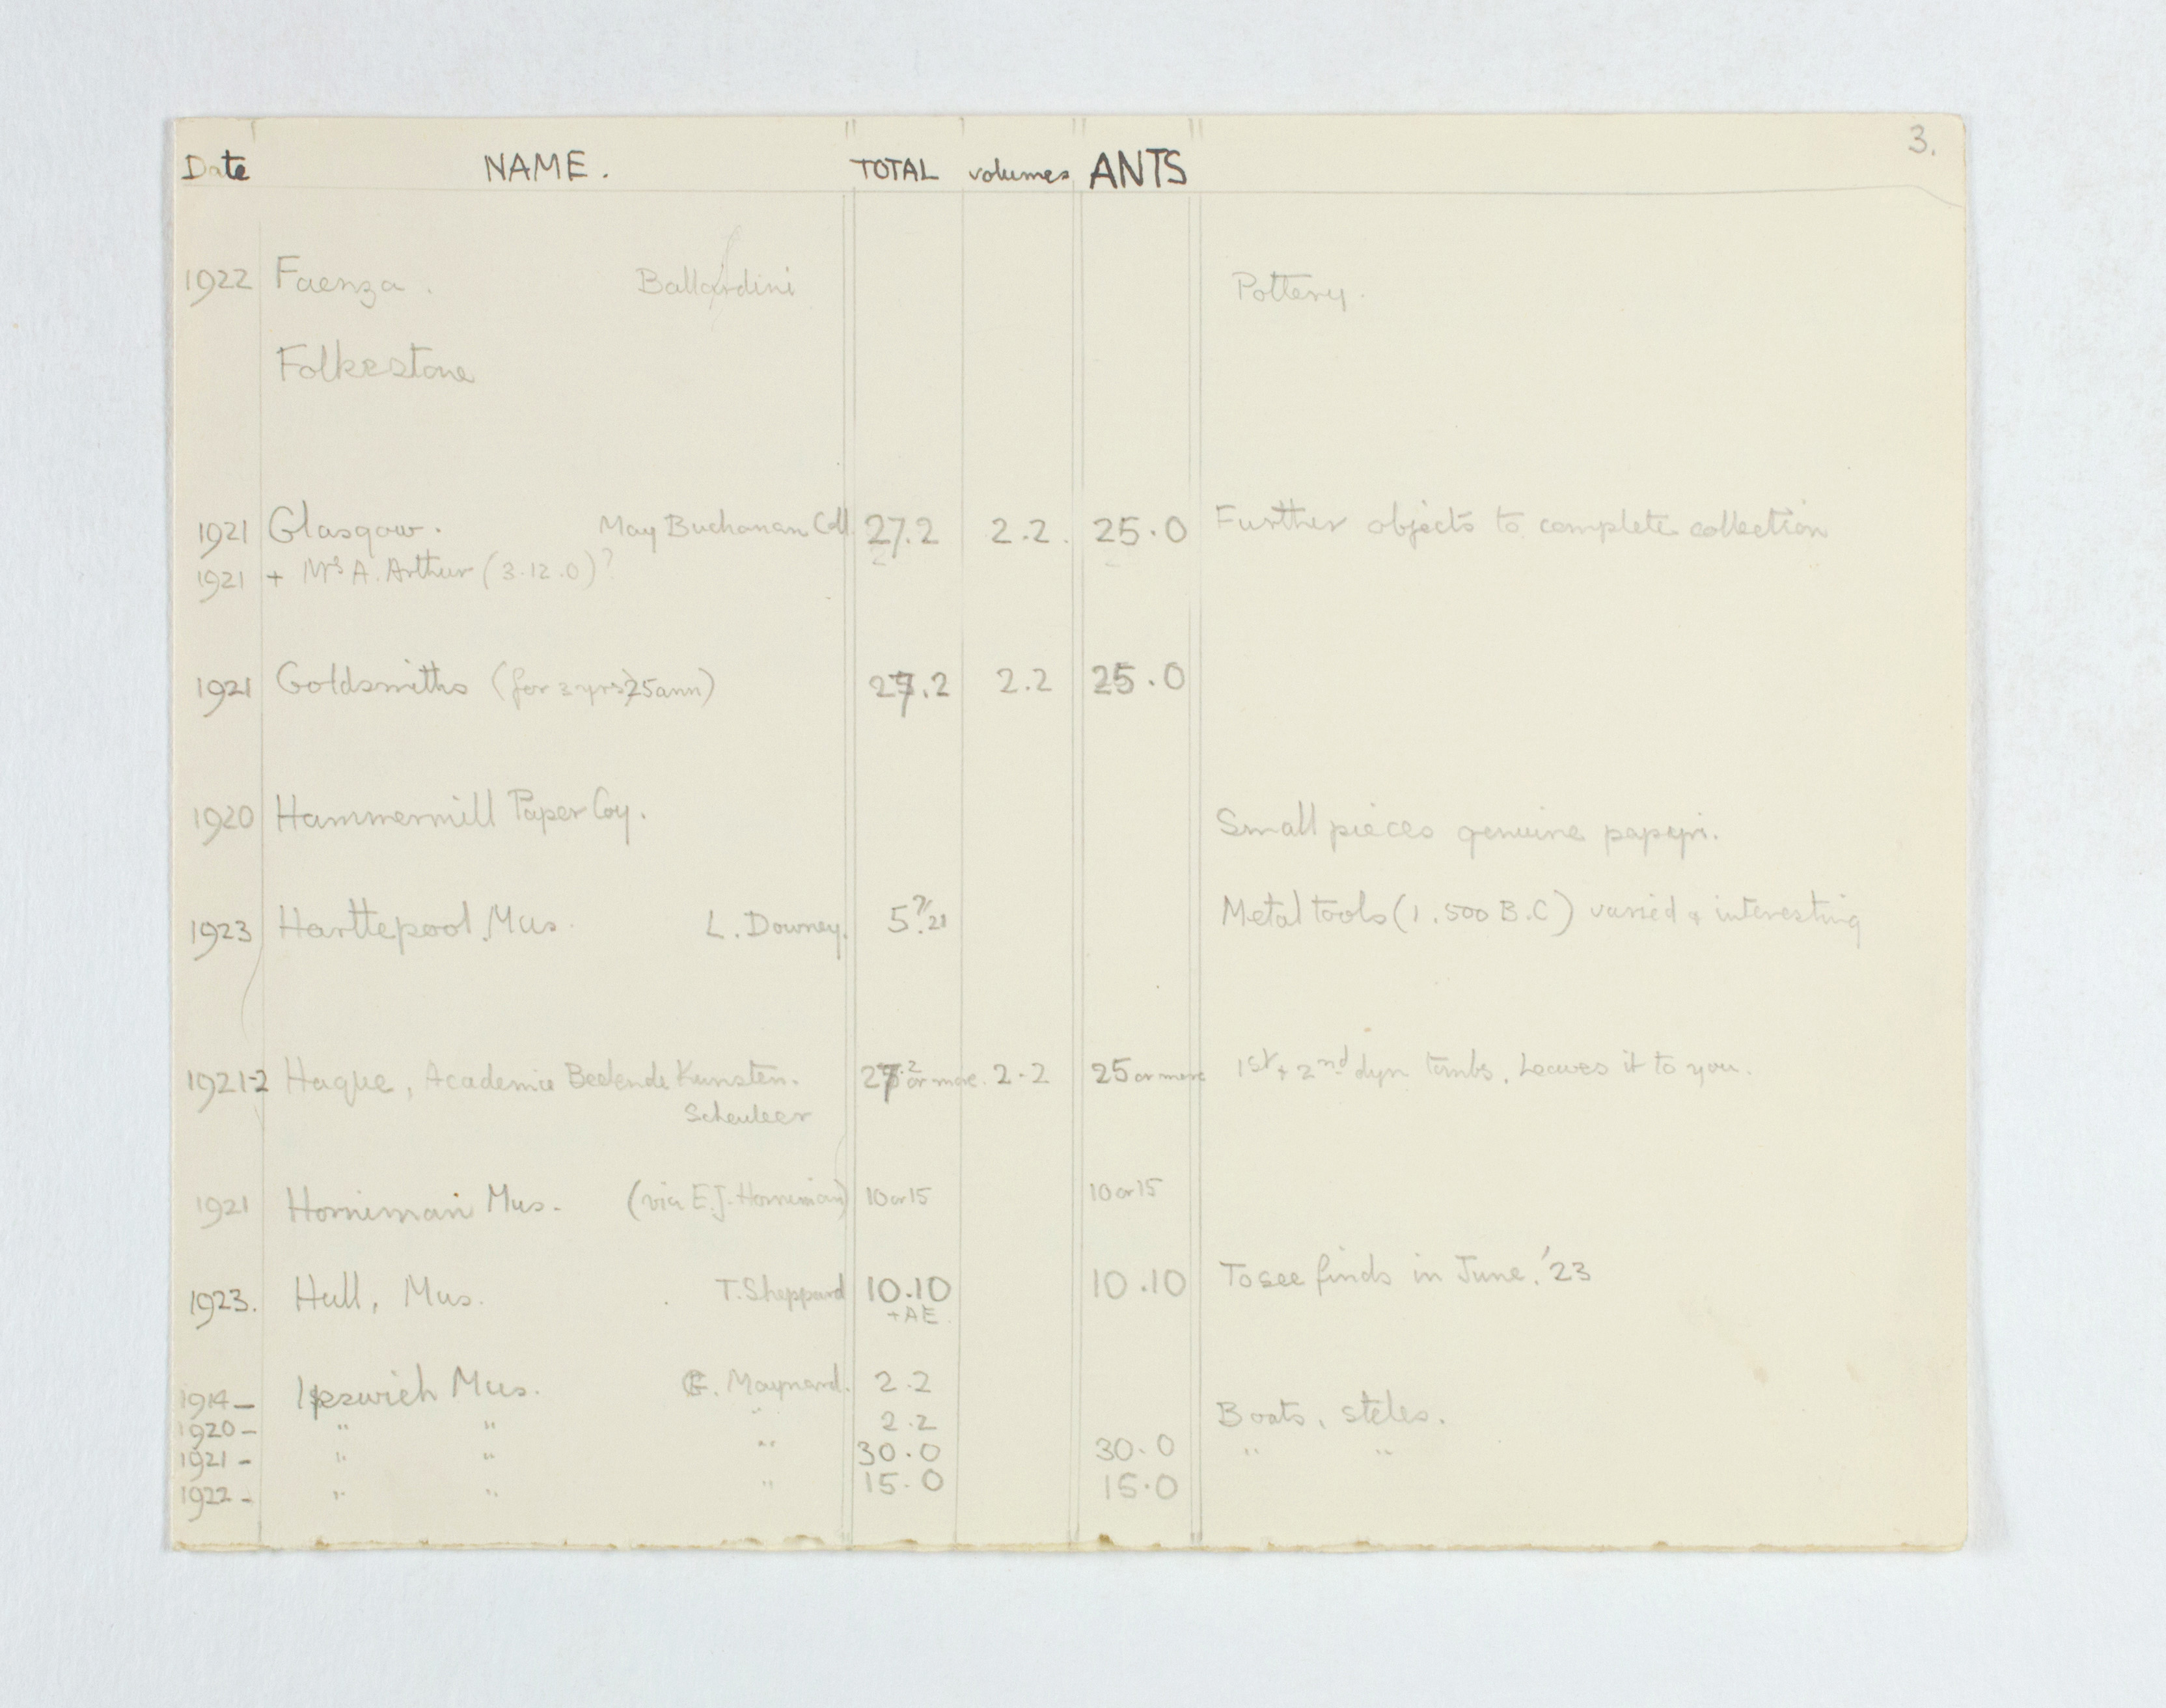 3.
Date NAME. TOTAL volumes ANTS
1922 Faenza. Ballardini Pottery.
Folkestone
1921 Glasgow. May Buchanan Coll. 27.2 2.2. 25.0 Further objects to complete collection
1921 + Mrs A. Arthur (3.12.0)?
1921 Goldsmiths (for 3 yrs) 25 ann) 27.2 2.2 25.0
1920 Hammermill Paper Coy. Small pieces genuine papyri.
1923 Harttepool Mus. L. Downey. 5?/21 Metal tools (1.500 B.C) varied & interesting
1921-2 Hague, Academie Beelende Kunsten. 27.2 or more. 2.2 25 or more 1st + 2nd dyn tombs. Leaves it to you.
Scheuleer
1921 Horniman Mus. (via E.J. Horniman) 10 or 15 10 or 15
1923. Hull, Mus. T. Sheppard 10.10 10.10 To see finds in June. '23
+AE.
1914 - Ipswich Mus. G. Maynard. 2.2
1920 - " " " 2.2 Boats, steles.
1921 - " " " 30.0 30.0 " "
1922 - " " " 15.0 15.0